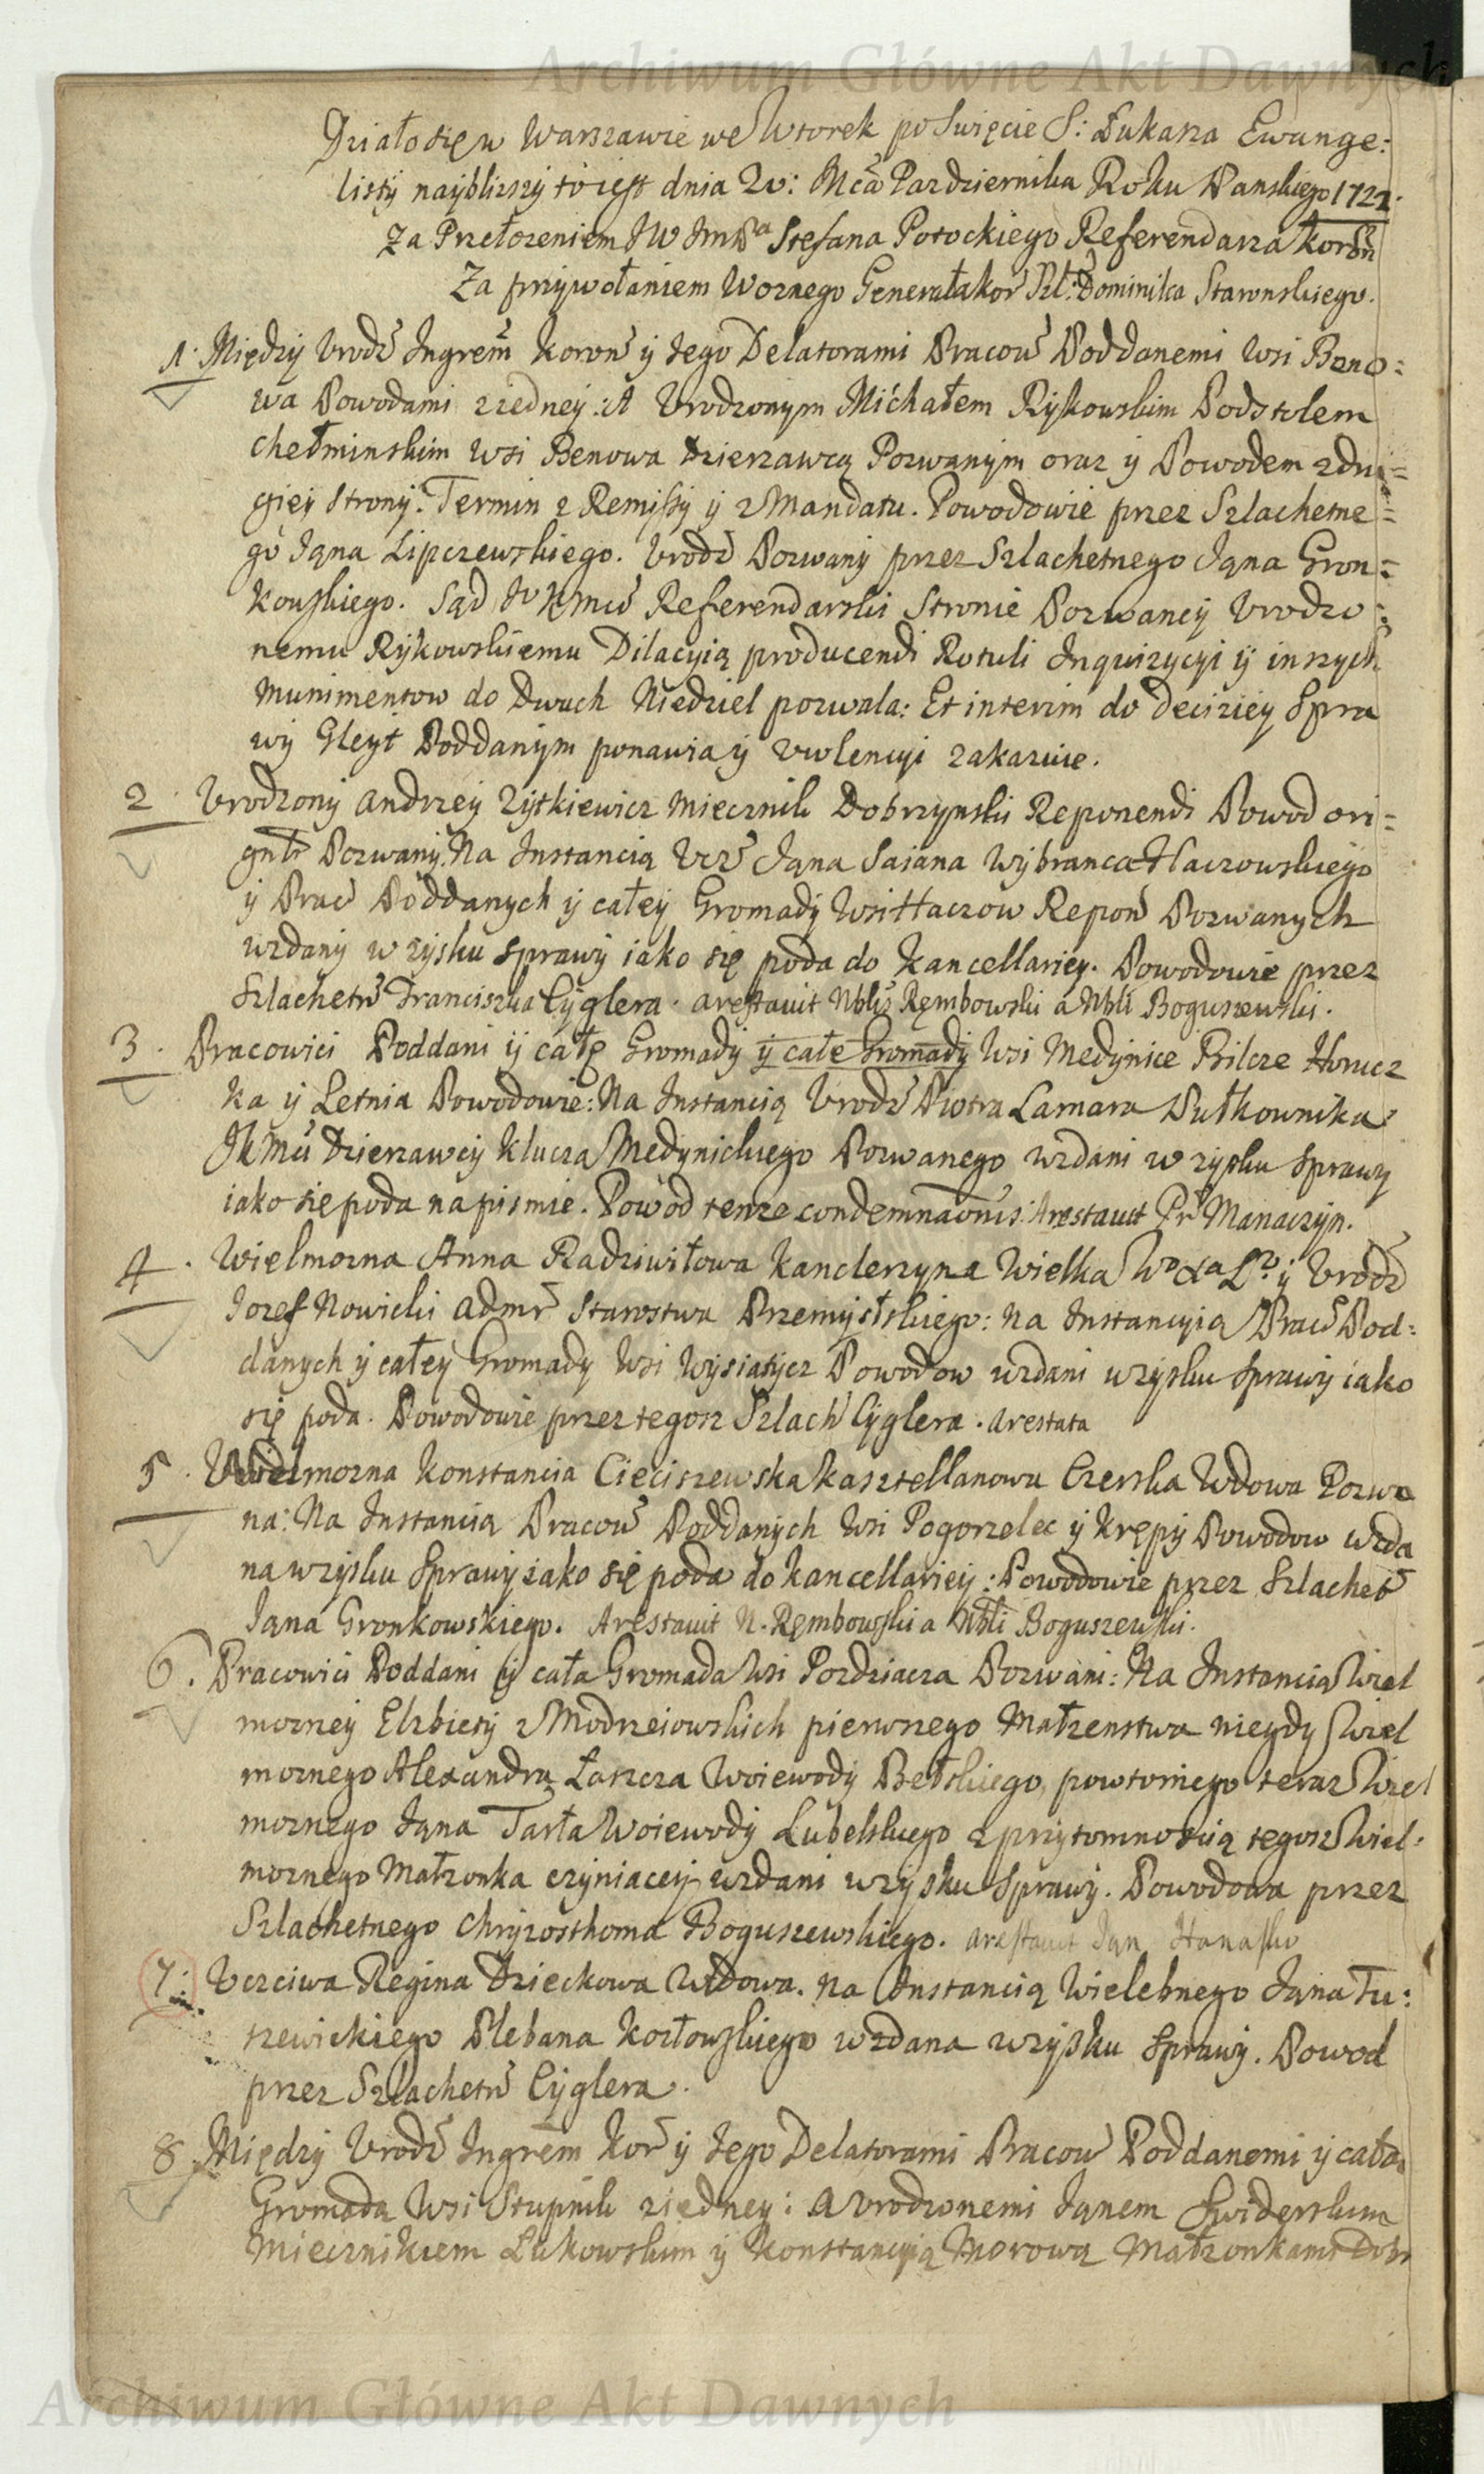 Archiwum Główne Akt Dawnych
Działo się w Warszawie we Wtorek po Swięcie S: Łukasza Ewange:
listy nayblizszy to iest dnia 20: Mca Pazdziernika Roku Panskiego 1722.
Za Przełozeniem JW Jmsa Stefana Potockiego Referendarza koron
Za przywołaniem Woznego Generała kor Szl: Dominika Stawnskiego.
1. Między Urodz Jngrem koron y Jego Delatorami Pracow Poddanemi Wsi Beno=
wa Powodami z iedney: A Urodzonym Michałem Rykowskim Podstolem
chełminskim Wsi Benowa Dzierzawcą Pozwanym oraz y Powodem z dru=
giey Strony. Termin z Remissy y z Mandatu. Powodowie przez Szlachetne=
go Jana Lipczewskiego. Urodz Pozwany przez Szlachetnego Jana Gron=
kowskiego. Sąd Referendarski Stronie Pozwaney Urodzo=
nemu Rykowskiemu Dilacyią producendi Rotuli Jnquizycyi y inszych
Munimentow do Dwuch Niedziel pozwala: Et interim do deciziey Spra
wy Gleyt Poddanym ponawia y vwlencyi zakazuie.
2. Urodzony Andrzey Zytkiewicz Miecznik Dobrzynski Reponendi Powod ori=
gnlr Pozwany. Na Jnstancią Ucz Jana Saiana Wybranca Haczowskiego
y Prac Poddanych y całey Gromady Wsi Haczow Repon Pozwanych
wzdany w zysku Sprawy iako się poda do kancellariey. Powodowie przez
Szlachetn Franciszka Cyglera. arestauit Nblis Rembowski a Nbli Boguszewski.
3. Pracowici Poddani y całe Gromady y całe Gromady Wsi Medynice Bilcze Horucz
ka y Letnia Powodowie: Na Jnstancią Urodz Piotra Lamara Pułkownika
JKMci Dzierzawcy klucza Medynickiego Pozwanego wzdani w zysku Sprawy
iako się poda na pismie. Powod tenze condemnaonis: Arestauit Pr Manaczyn.
4. Wielmozna Anna Radziwiłowa kanclerzyna Wielka y Urodz
Jozef Nowicki Admr Starostwa Przemyslskiego: Na Jnstancyią Prac Pod:
danych y całey Gromady Wsi Wysiatycz Powodow wzdani w zysku Sprawy iako
się poda. Powodowie przez tegosz Szlach Cyglera. arestata
5. Wielmozna Konstancia Cieciszewska kasztellanowa Czerska Wdowa Pozwa
na: Na Jnstancią Pracow Poddanych Wsi Pogorzelec y Krępy Powodow wzda
na w zysku Sprawy iako się poda do kancellariey: Powodowie przez Szlachet
Jana Gronkowskiego. Arestauit N. Rembowski a Nbli Boguszewski.
6. Pracowici Poddani y cała Gromada Wsi Pozdziacza Pozwani: Na Jnstancią Wiel
mozney Elzbiety z Modrzeiowskich pierwszego Małzenstwa niegdy Wiel
moznego Alexandra Łaszcza Woiewody Bełskiego, powtornego teraz Wiel
moznego Jana Tarła Woiewody Lubelskiego z przytomnoscią tegosz Wiel:
moznego Małzonka czyniacey wzdani w zysku Sprawy. Powodowa przez
Szlachetnego Chryzosthoma Boguszewskiego. arestauit Jan Hanasko
7: Uczciwa Regina Dzieckowa Wdowa. Na Jnstancią Wielebnego Jana Tu:
szewickiego Plebana Kozłowskiego wzdana w zysku Sprawy. Powod
przez Szlachetn Cyglera.
8 Między Urodz Jngrem kor y Jego Delatorami Pracow Poddanemi y całą
Gromadą Wsi Stupnik z iedney: A Urodzonemi Janem Swiderskim
Miecznikiem Łukowskim y Konstancyią Morową Małzonkami Dobr
Archiwum Główne Akt Dawnych